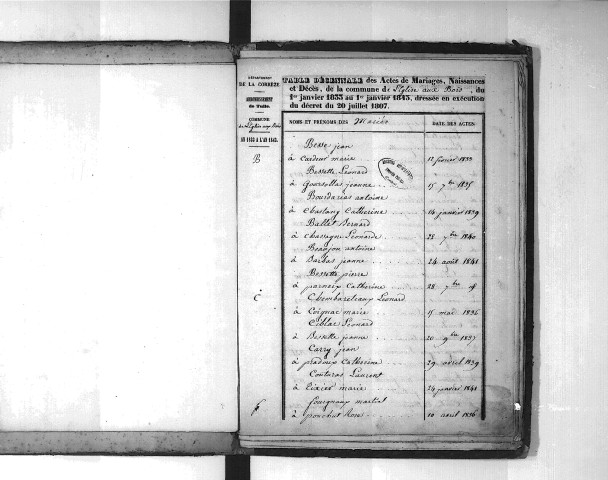 DÉPARTEMENT
DE LA CORRÈZE
ARRONDISSEMENT
de Tulle.
COMMUNE
de L'Eglise aux Bois
AN 1833 A L'AN 1843.
TABLE DÉCENNALE des Actes de Mariages, Naissances
et Décès, de la commune de L'Eglise aux Bois, du
1er janvier 1833 au 1er janvier 1843, dressée en exécution
du décret du 20 juillet 1807.
NOMS ET PRÉNOMS DES Mariés
DATE DES ACTES.
B
Besse jean
à Cardeur marie 12 février 1833
Bessette Léonard
à Goursolla jeanne 15 7bre 1835
Bourdarias antoine
à Chastang Catherine 14 janvier 1839
Ballet Bernard
à Chassagne Léonarde 25 7bre 1840
Beaujon antoine
à Barbas jeanne 24 août 1841
Bessette pierre
à parneix Catherine 28 7bre
C
Chembareteaux Léonard
à Coignac marie 15 mai 1836
Ciblac Léonard
à Bessette jeanne 20 9bre 1837
Carry jean
à pradoux Catherine 29 avril 1839
Couturas Laurent
à Tixier marie 24 janvier 1841
f
fourgnaux martial
à pouchut Rose 16 avril 1836